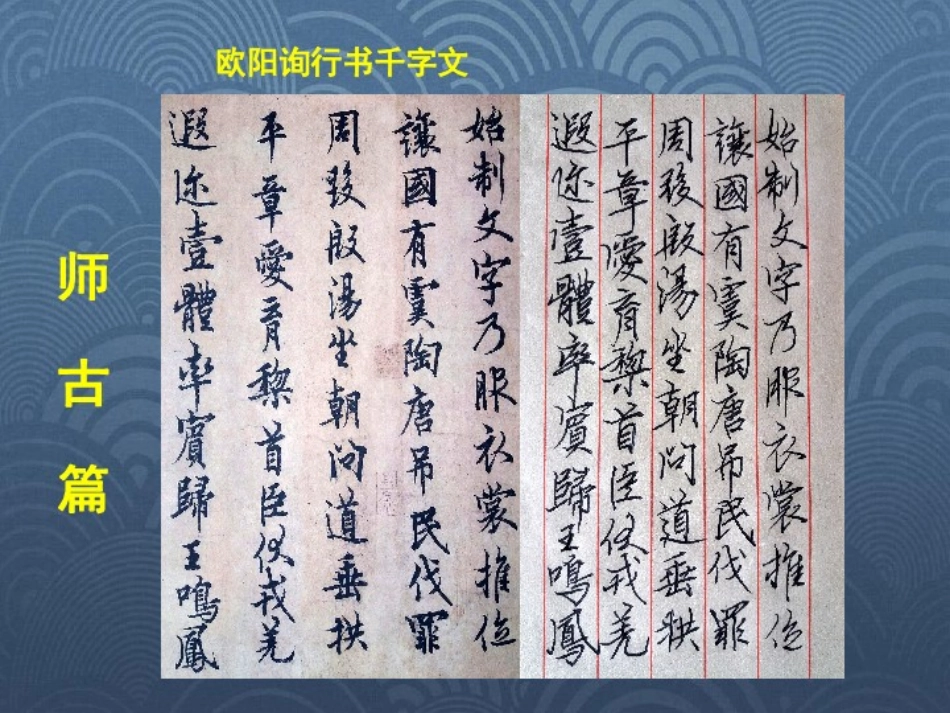 欧阳询行书千字文
师古篇
始制文字乃服衣裳推位
讓國有虞陶唐吊民伐罪
周發殷湯坐朝问道垂拱
平章愛育黎首臣伏戎羌
遐迩壹體率賓歸王鳴鳳
始制文字乃服衣裳推位
讓國有虞陶唐吊民伐罪
周發殷湯坐朝问道垂拱
平章愛育黎首臣伏戎羌
遐迩壹體率賓歸王鳴鳳